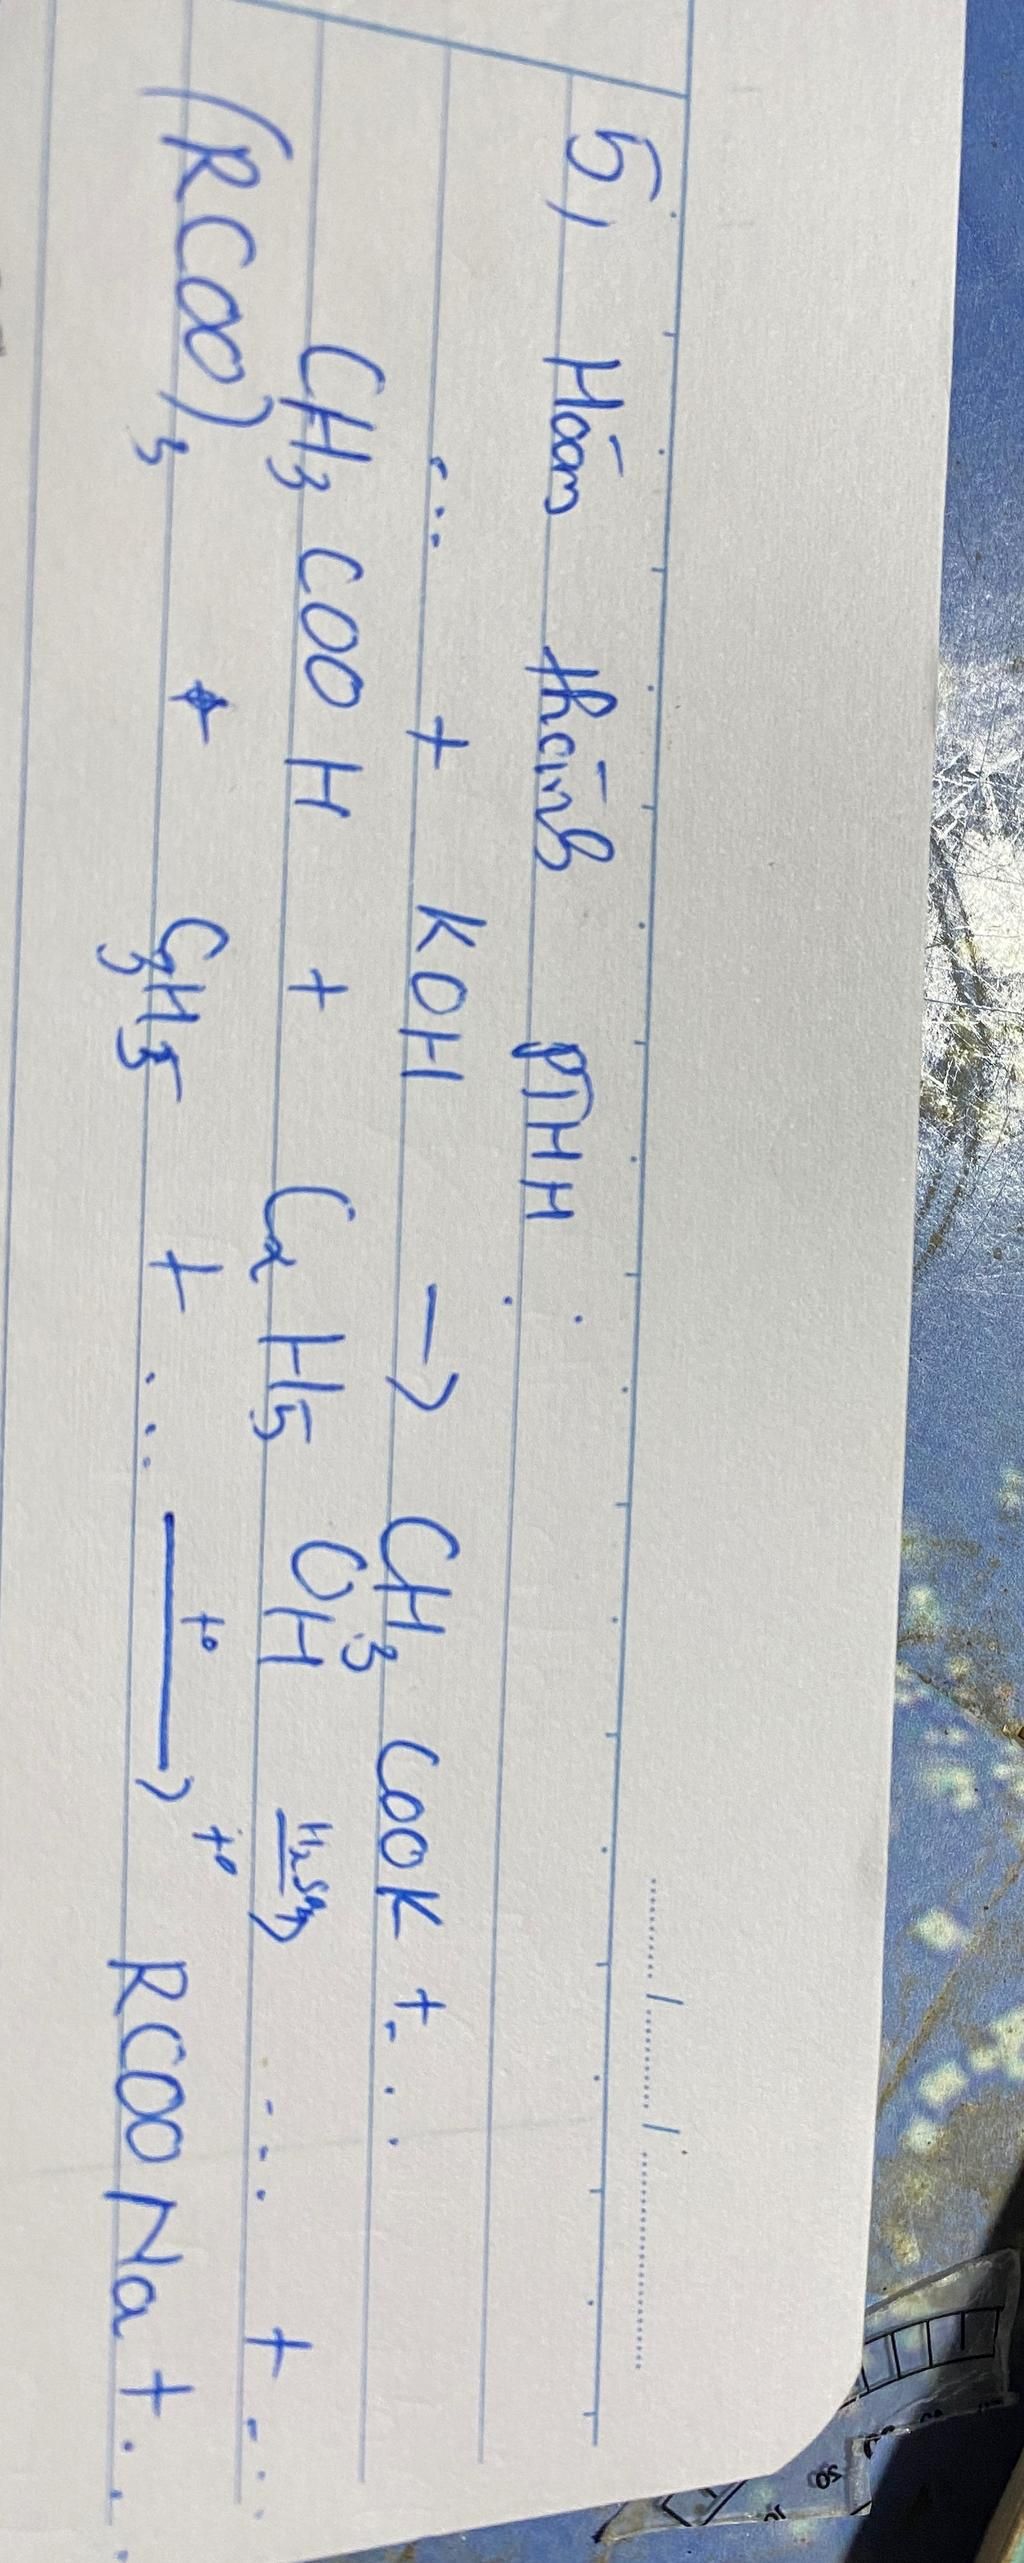 5, Hoàn thành PTHH :
... + KOH → CH3 COOK + ...
CH3 COOH + C2H5 OH H2SO4 → t° ... + ...
(RCOO)3 C3H5 + ... t° → RCOONa + ...